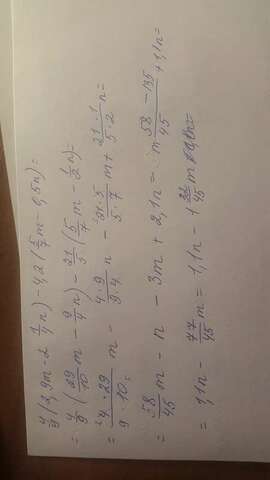 4/9(2,9m - 2 1/4 n) - 4,2(5/7 m - 0,5n) =
= 4/9(29/10 m - 9/4 n) - 21/5(5/7 m - 1/2 n) =
= 4·29/9·10 m - 4·9/9·4 n - 21·5/5·7 m + 21·1/5·2 n =
= 58/45 m - n - 3m + 2,1n = m 58-135/45 + 1,1n
= 1,1n - 77/45 m = 1,1n - 1 32/45 m